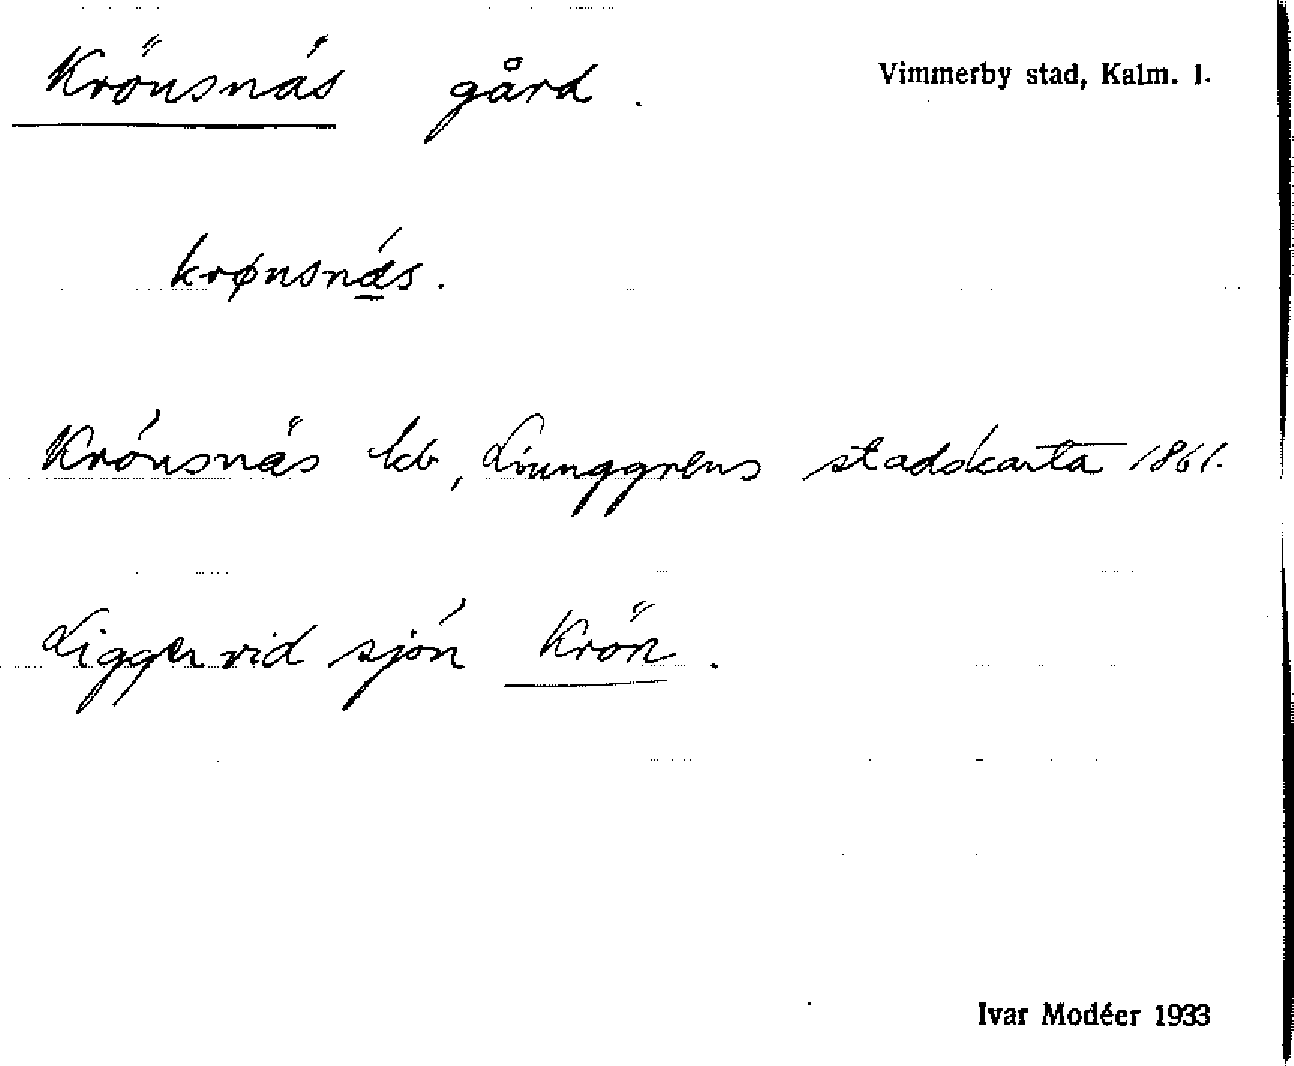 Krönsnäs gård.
Vimmerby stad, Kalm. l.
krønsnás.
Krönsnäs kb, Ljunggrens stadskarta 1861.
Ligger vid sjön Krön.
Ivar Modéer 1933